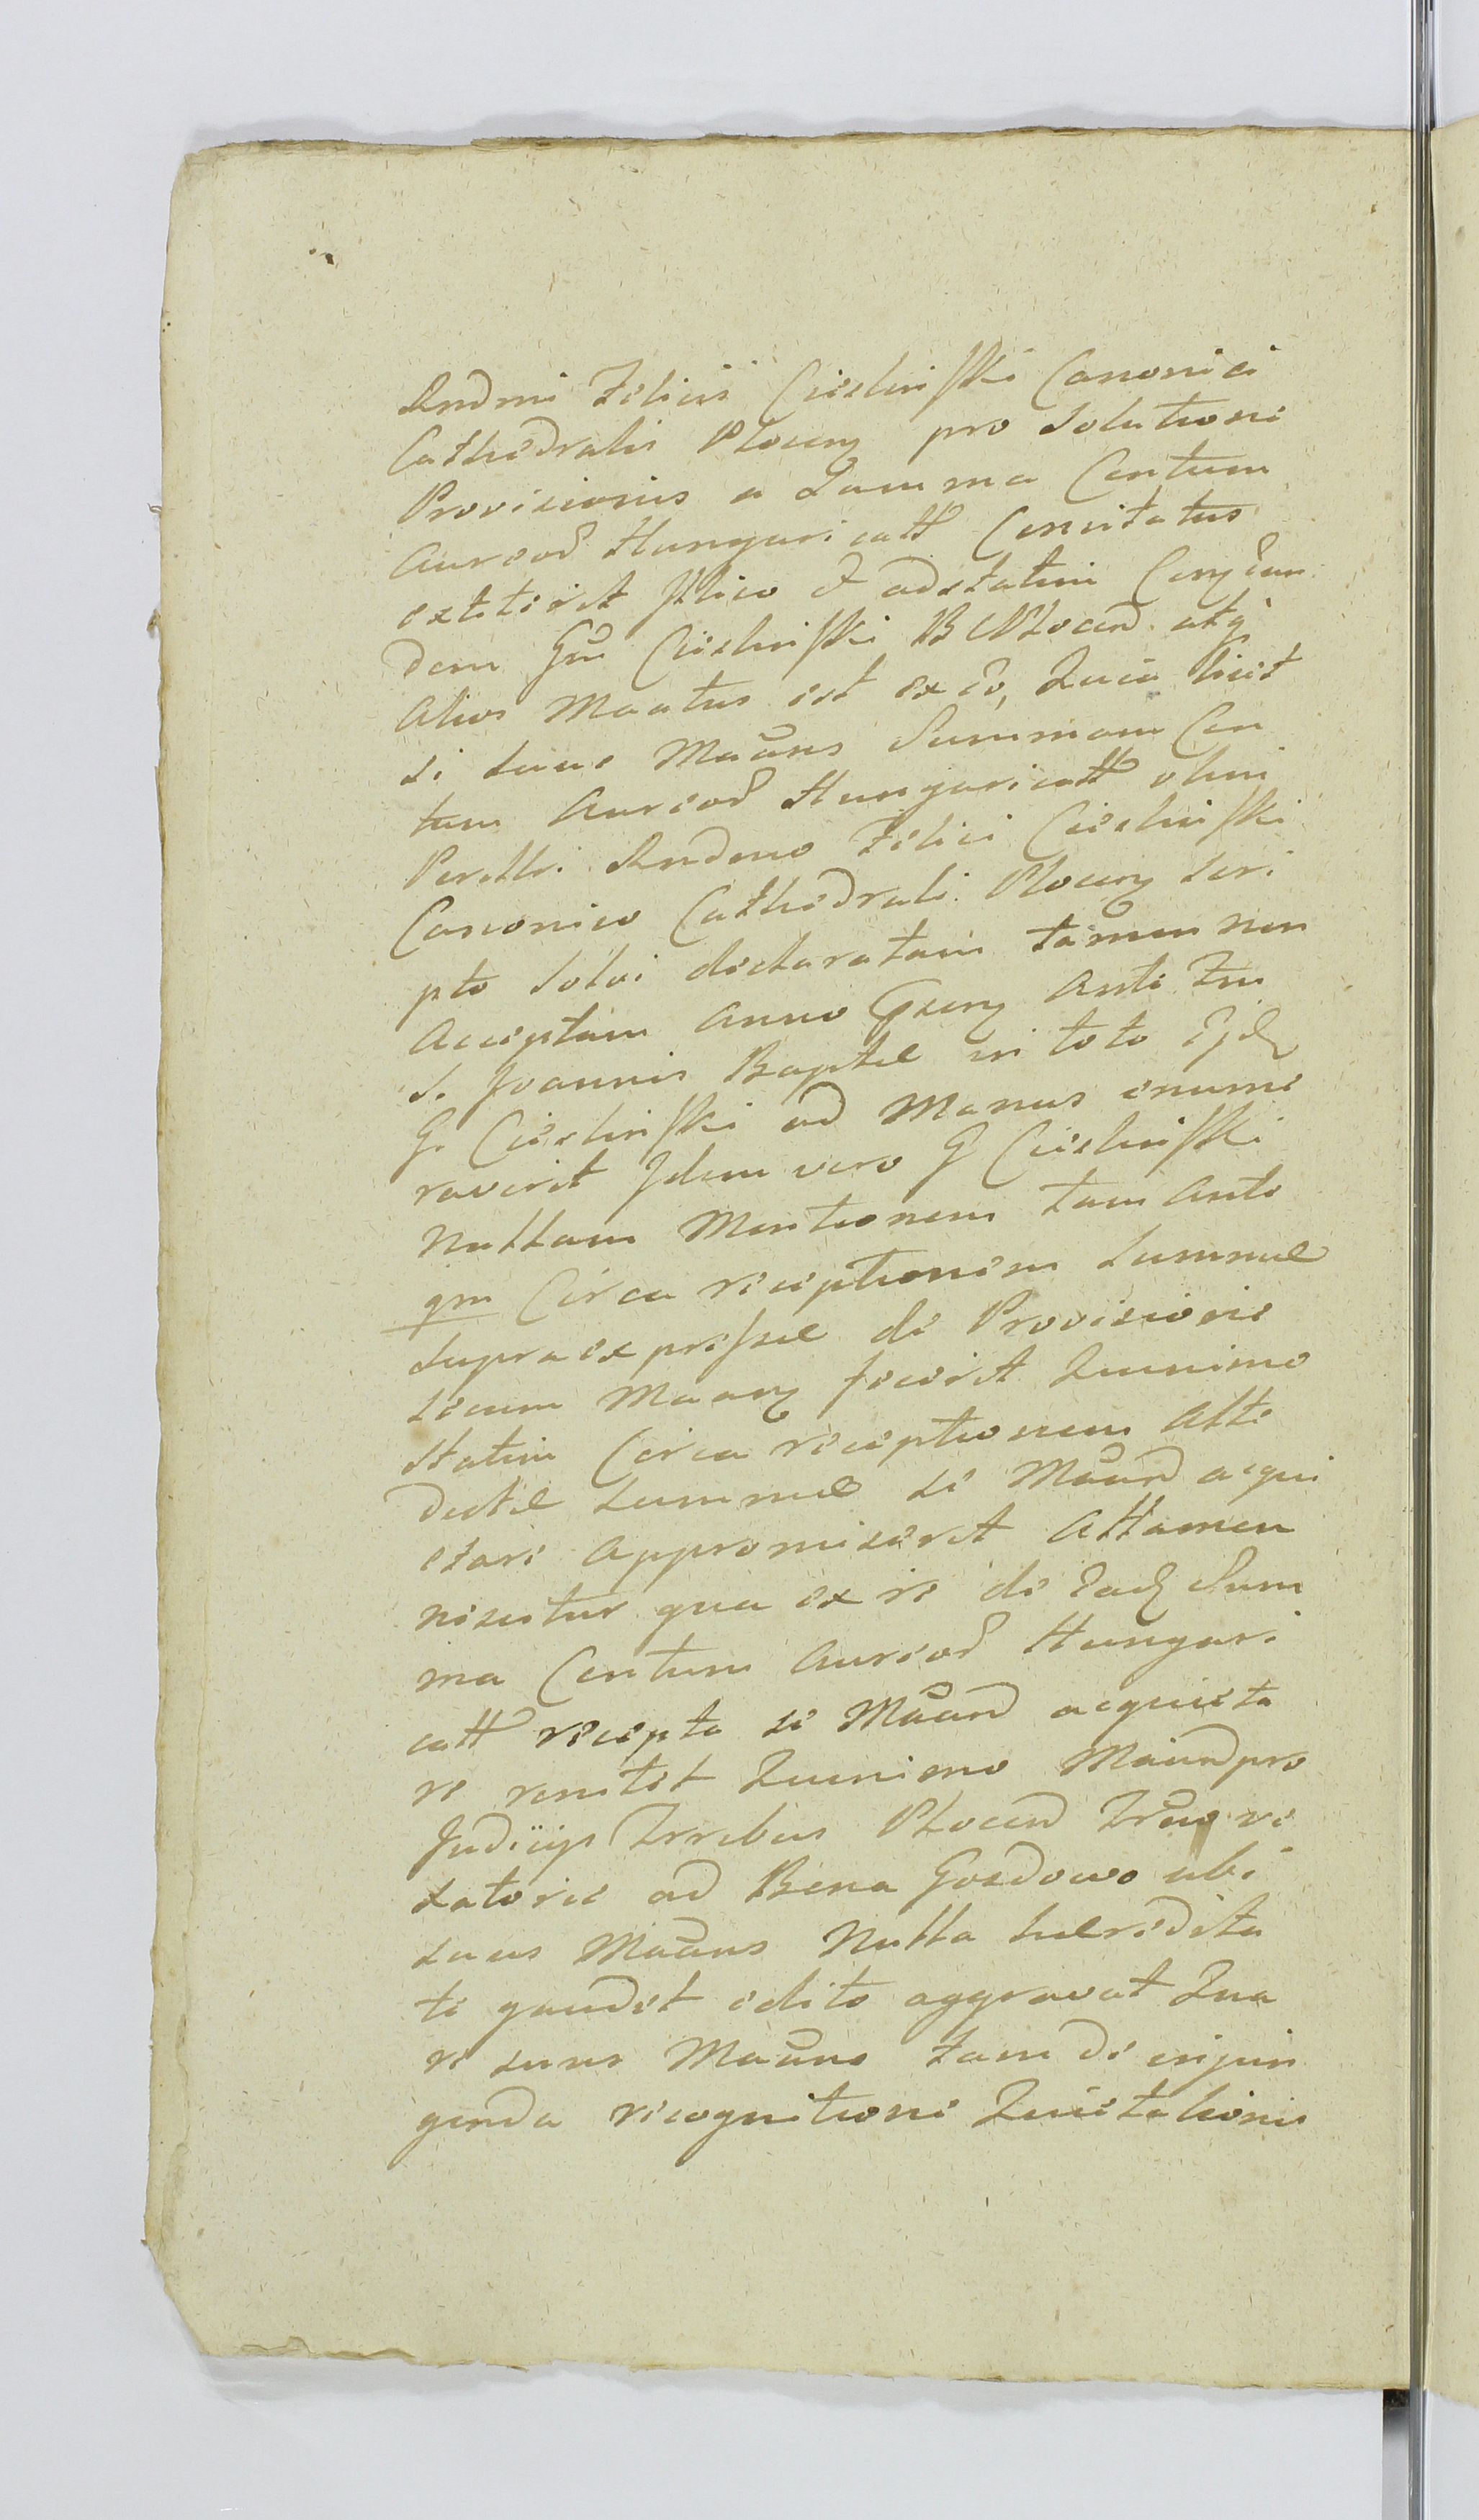 Rndmi Felicis Cieslinski Canonici
Cathedralis Plocen pro Solutione
Provisionis a Summa Centum
Aureor Hungaricall Concitatus
extiterit Illico et adstatim
dem Gm Cieslinski B Plocen atq
alios Maatus est ex eo, Quia licet
se suus Maans Summam Cen
tum Aureor Hungaricall olim
Perilli Rndmo Felici Cieslinski
Canonico Cathedrali Plocen Scri
pto Solvi declaratam tamen non
Acceptam Anno Ante Fm
S. Joannis Baptae in toto Ejd
G. Cieslinski ad Manus enume
raverit Idem vero G Cieslinski
Nullam Mentionem tam Ante
qm Circa receptionem Summae
supraexpressae de Provisione
secum Maan fecerit Quinimo
Statim Circa receptionem Atte
dictae Summae se Maand acqui
etare appromiserit Attamen
nescitur qua ex re de Ead Sum
ma Centum Aureor Hungari
call recepta se Maand acquieta
re renitet Quinimo Maand pro
Judiciis Trrebus Plocen
satorie ad Bona Gozdowo ubi
suus Maans Nulla haeredita
te gaudet edito aggravat Qua
re suus Maans tam de injun
genda recognitione Quietationis